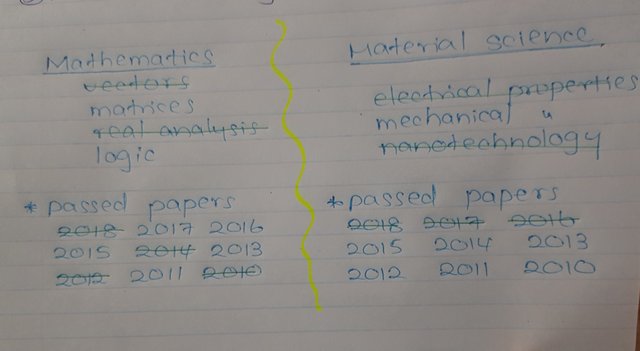 Mathematics
vectors
matrices
real analysis
logic
* passed papers
2018 2017 2016
2015 2014 2013
2012 2011 2010
Material science
electrical properties
mechanical "
nanotechnology
* passed papers
2018 2017 2016
2015 2014 2013
2012 2011 2010